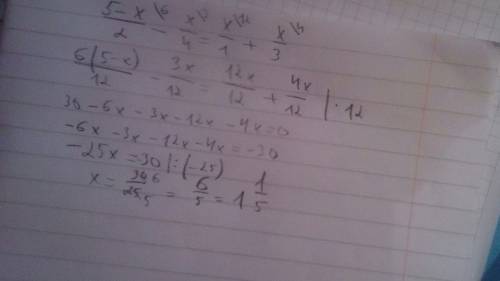 5-x\6/2 - x\3/4 = x\12/1 + x\4/3
6(5-x)/12 - 3x/12 = 12x/12 + 4x/12 | · 12
30 - 6x - 3x - 12x - 4x = 0
-6x - 3x - 12x - 4x = -30
-25x = 30 | : (-25)
x = 30 6/25 5 = 6/5 = 1 1/5